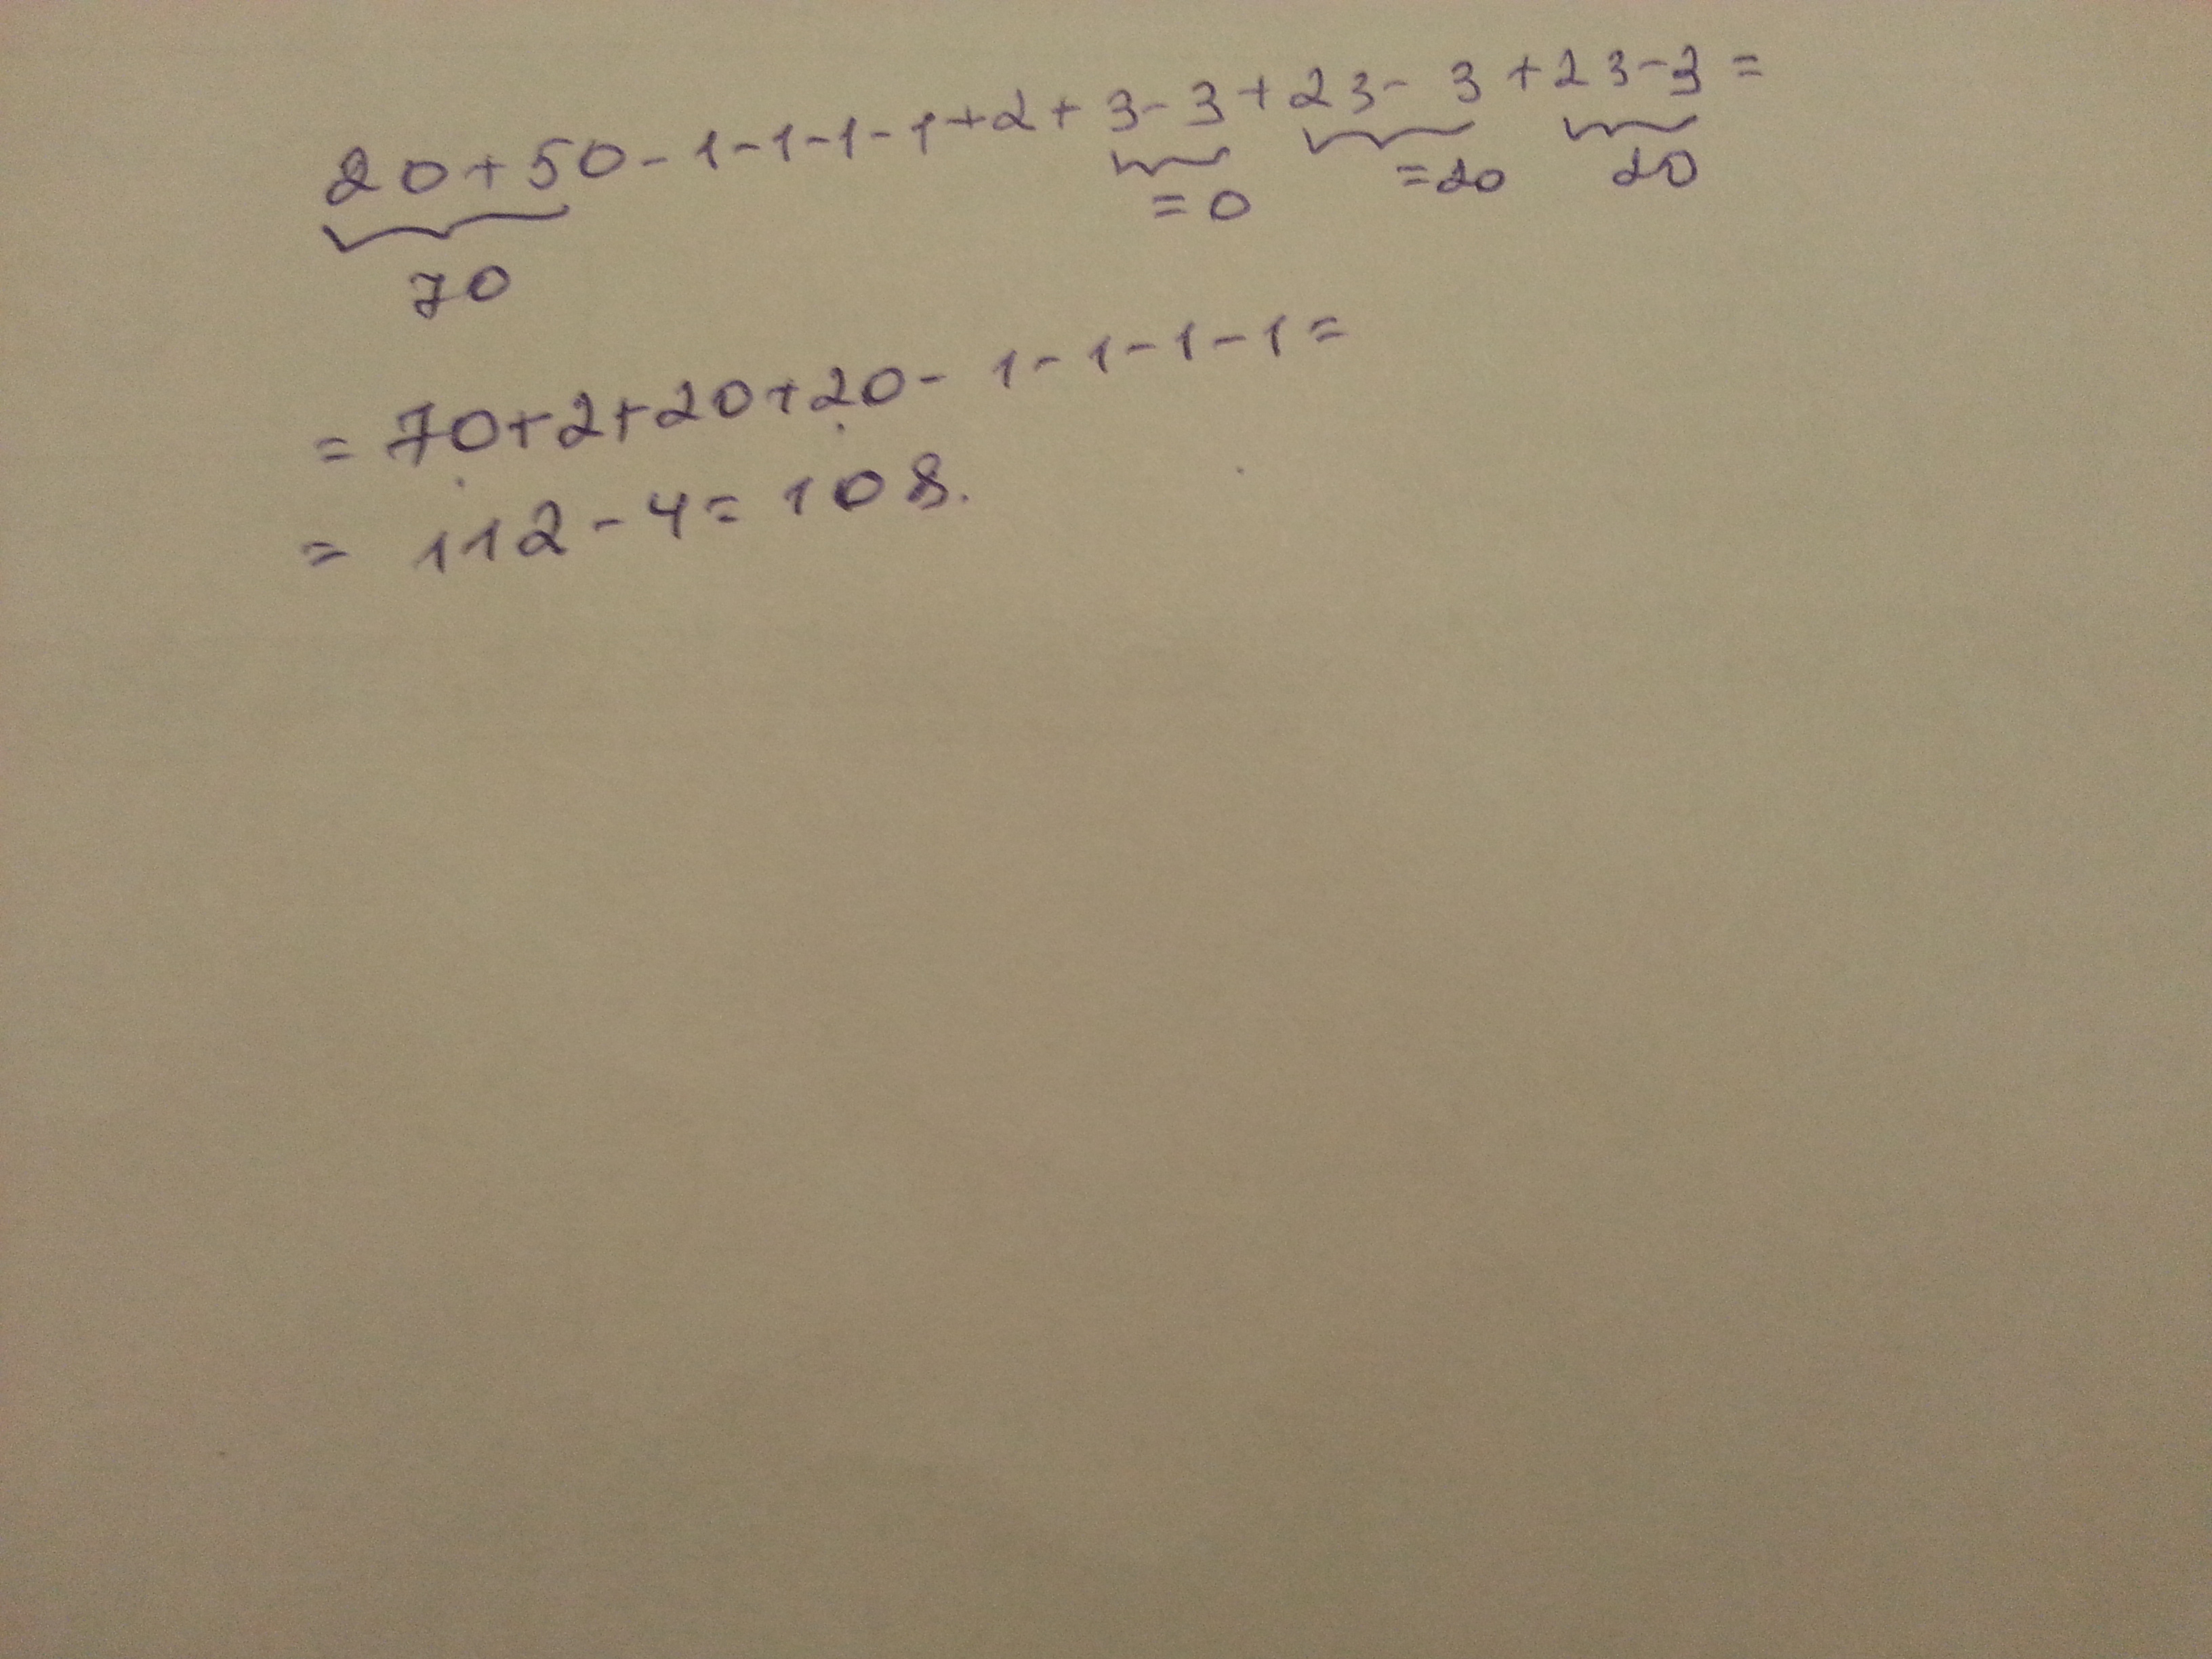 20+50-1-1-1-1+2+3-3+23-3+23-3=
70 =0 =20 20
=70+2+20+20-1-1-1-1=
=112-4=108.